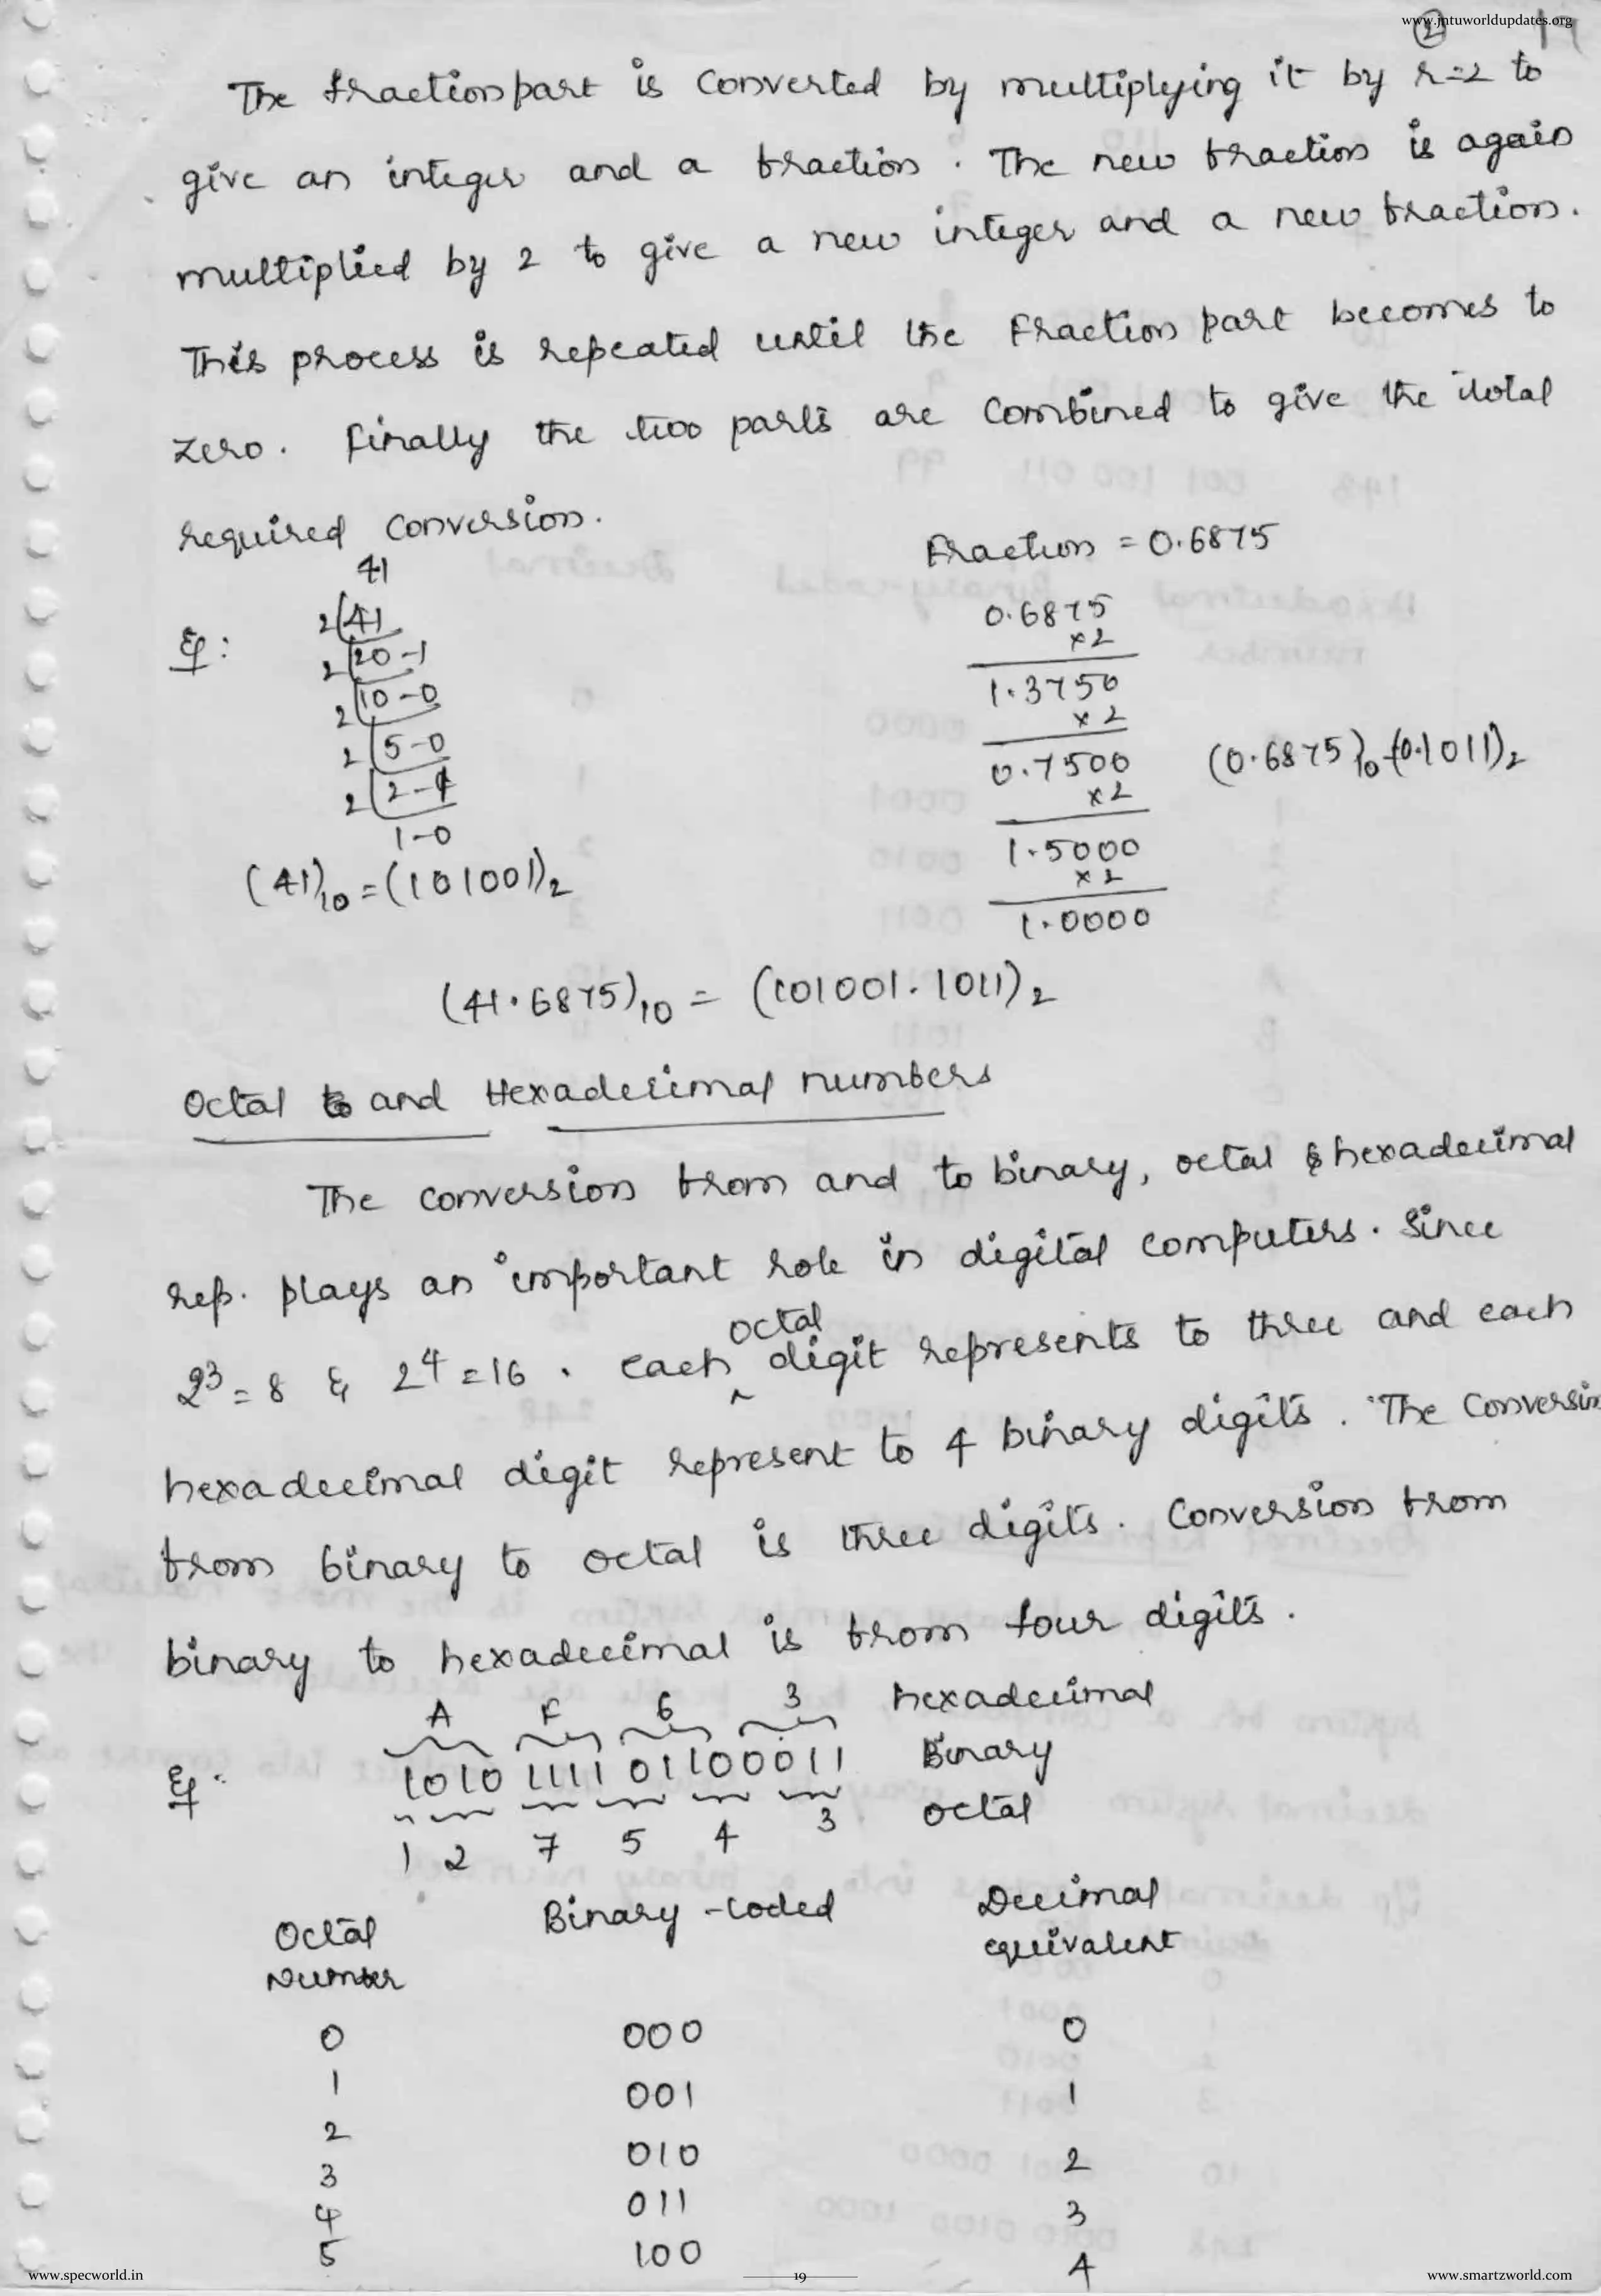 www.jntuworldupdates.org
2
The fraction part is converted by multiplying it by r=2 to
give an integer and a fraction. The new fraction is again
multiplied by 2 to give a new integer and a new fraction.
This process is repeated until the fraction part becomes to
zero. Finally the two parts are combined to give the total
required conversion.
41
Eg:
2 41
2 20-1
2 10-0
2 5-0
2 2-1
1-0
(41)10 = (101001)2
Fraction = 0.6875
0.6875
×2
1.3750
×2
0.7500
×2
1.5000
×2
1.0000
(0.6875)10 = (0.1011)2
(41.6875)10 = (101001.1011)2
Octal and Hexadecimal numbers
The conversion from and to binary, octal & hexadecimal
rep. plays an important role in digital computers. Since
2^3=8 & 2^4=16. each octal digit represents to three and each
hexadecimal digit represent to 4 binary digits. The Conversion
from binary to octal is three digits. Conversion from
binary to hexadecimal is from four digits.
A F 6 3 hexadecimal
Eg: 1010 1111 01100011 Binary
1 2 7 5 4 3 octal
Octal Number Binary-coded Decimal equivalent
0 000 0
1 001 1
2 010 2
3 011 3
4 100 4
5
www.specworld.in
19
www.smartzworld.com